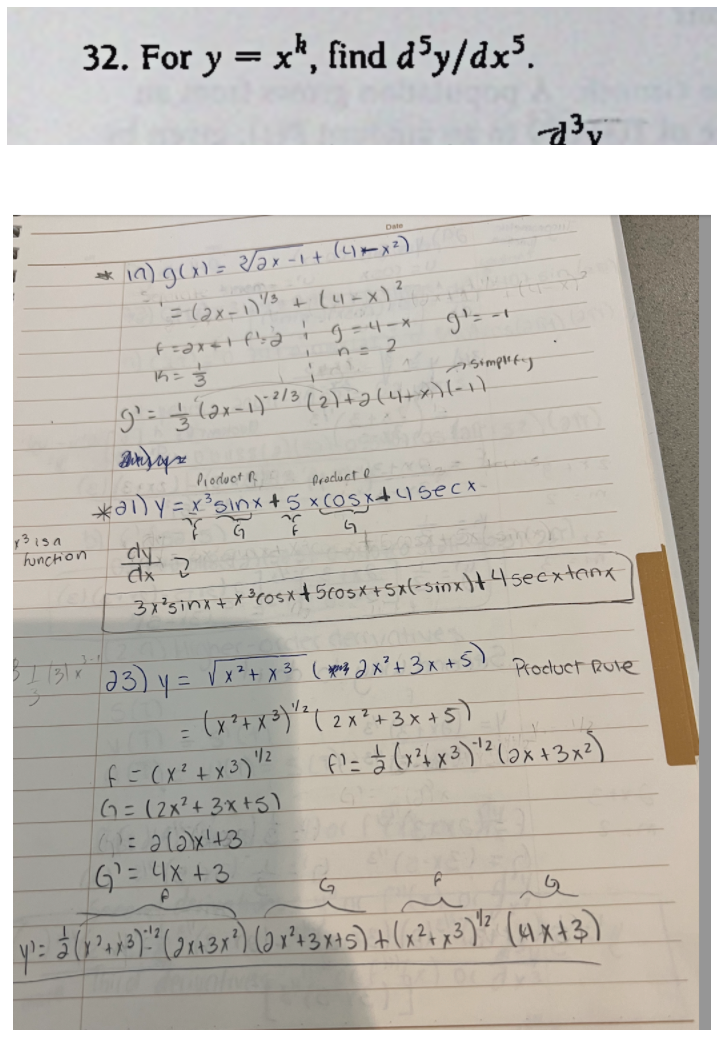 32. For y = xᵏ, find d⁵y/dx⁵.
d³y
Date
* 19) g(x) = ∛2x-1 + (4-x²)
= (2x-1)^1/3 + (4-x)²
f = 2x+1 f' = 2 g = 4-x g' = -1
n = 1/3 n = 2
→ simplify
g' = 1/3 (2x-1)^-2/3 (2) + 2(4-x)(-1)
Product R Product R
*21) y = x³sinx + 5xcosx + 4secx
f G f G
x³ is a
function
dy/dx
3x²sinx + x³cosx + 5cosx + 5x(-sinx) + 4secxtanx
23) y = √x²+x³ (2x²+3x+5) Product Rule
= (x²+x³)^1/2 (2x²+3x+5)
f = (x²+x³)^1/2 f' = 1/2 (x²+x³)^-1/2 (2x+3x²)
G = (2x²+3x+5)
G' = 2(2)x'+3
G' = 4x+3
f G f G
y' = 1/2 (x²+x³)^-1/2 (2x+3x²) (2x²+3x+5) + (x²+x³)^1/2 (4x+3)